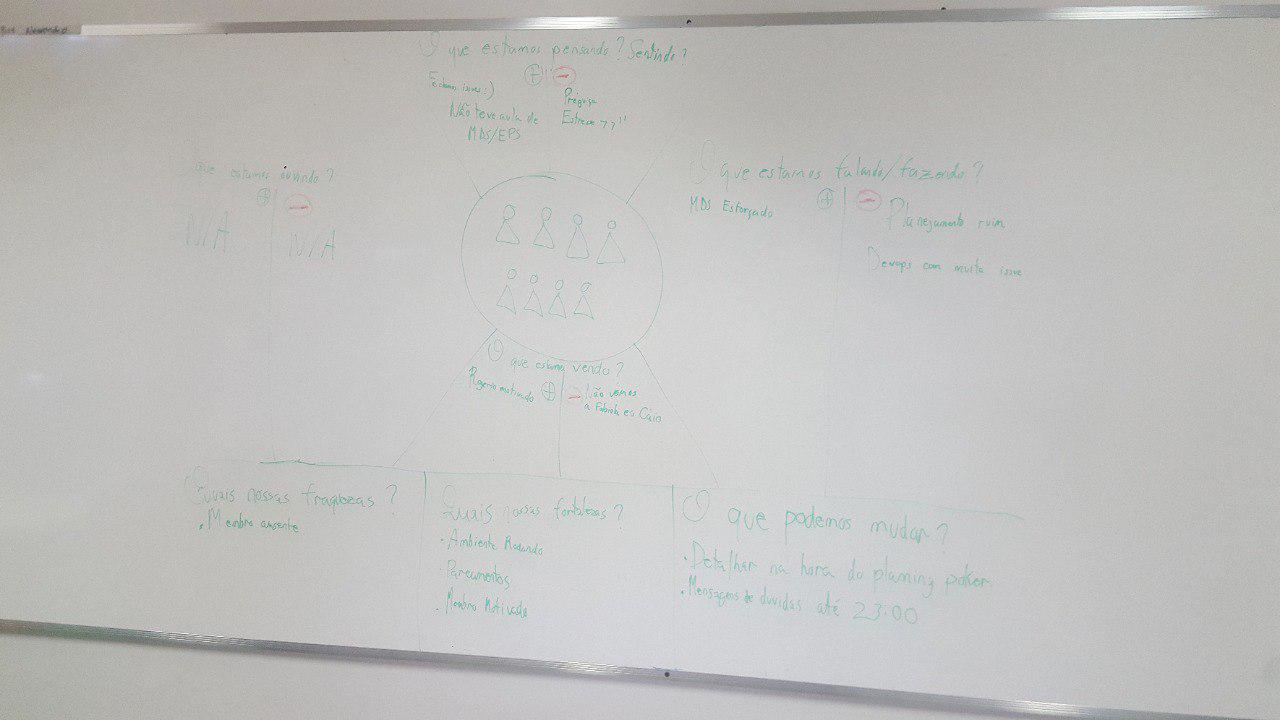 O que estamos pensando? Sentindo?
+ -
Fechamos issues :)
Não teve aula de
MDS/EPS
Preguiça
Estresse 77"
que estamos ouvindo?
+ -
N/A N/A
O que estamos falando/fazendo?
+ -
MDS Esforçado
Planejamento ruim
Devops com muita issue
O que estamos vendo?
+ -
Rogerio motivado
Não vemos
a Fabiola e o Caio
Quais nossas fraquezas?
. Membro ausente
Quais nossas fortalezas?
. Ambiente Rodando
. Pareamentos
. Membro Motivado
O que podemos mudar?
. Detalhar na hora do planning poker
. Mensagens de duvidas até 23:00